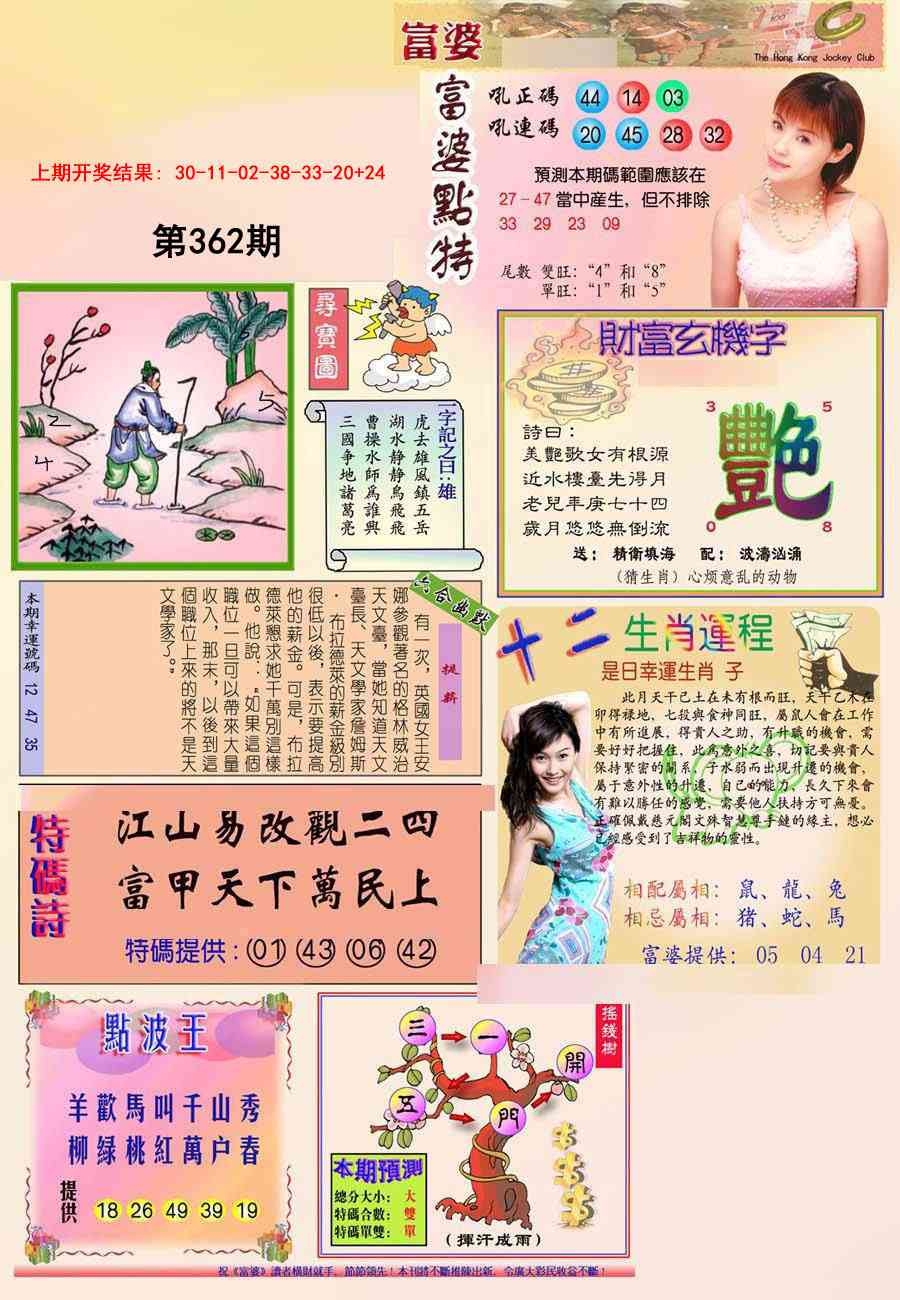 富婆
The Hong Kong Jockey Club
富婆點特
吼正碼 44 14 03
吼連碼 20 45 28 32
預測本期碼範圍應該在
27-47當中産生，但不排除
33 29 23 09
尾數 雙旺：“4”和“8”
單旺：“1”和“5”
上期开奖结果: 30-11-02-38-33-20+24
第362期
2
4
5
5
尋寶圖
一字記之曰：雄
虎去雄風鎮五岳
湖水静静鳥飛飛
曹操水師爲誰興
三國争地諸葛亮
財富玄機字
詩曰：
美艷歌女有根源
近水樓臺先得月
老兒年庚七十四
歲月悠悠無倒流
3 5
艷
0 8
送： 精衛填海 配： 波濤汹涌
（猜生肖）心烦意乱的动物
六合幽默
提薪
有一次，英國女王安
娜參觀著名的格林威治
天文臺，當她知道天文
臺長、天文學家詹姆斯
·布拉德萊的薪金級別
很低以後，表示要提高
他的薪金。可是，布拉
德萊懇求她千萬别這樣
做。他說：“如果這個
職位一旦可以帶來大量
收入，那末，以後到這
個職位上來的將不是天
文學家了。”
本期幸運號碼 12 47 35
十二生肖運程
是日幸運生肖 子
此月天干己土在未有根而旺，天干乙木在
卯得祿地，七殺與食神同旺，屬鼠人會在工作
中有所進展，得貴人之助，有升職的機會，需
要好好把握住，此爲意外之喜，切記要與貴人
保持緊密的關系，子水弱而出現升遷的機會，
屬于意外性的升遷，自己的能力，長久下來會
有難以勝任的感覺，需要他人扶持方可無憂。
正確佩戴慈元閣文殊智慧尊手鏈的緣主，想必
已經感受到了吉祥物的靈性。
相配屬相： 鼠、龍、兔
相忌屬相： 猪、蛇、馬
富婆提供： 05 04 21
特碼詩
江山易改觀二四
富甲天下萬民上
特碼提供：01 43 06 42
點波王
羊歡馬叫千山秀
柳緑桃紅萬户春
提供 18 26 49 39 19
摇錢樹
三 一 開
五 門
本期預測
總分大小： 大
特碼合數： 雙
特碼單雙： 單
（揮汗成雨）
祝《富婆》讀者橫財就手，節節領先！本刊將不斷推陳出新，令廣大彩民收益不斷！